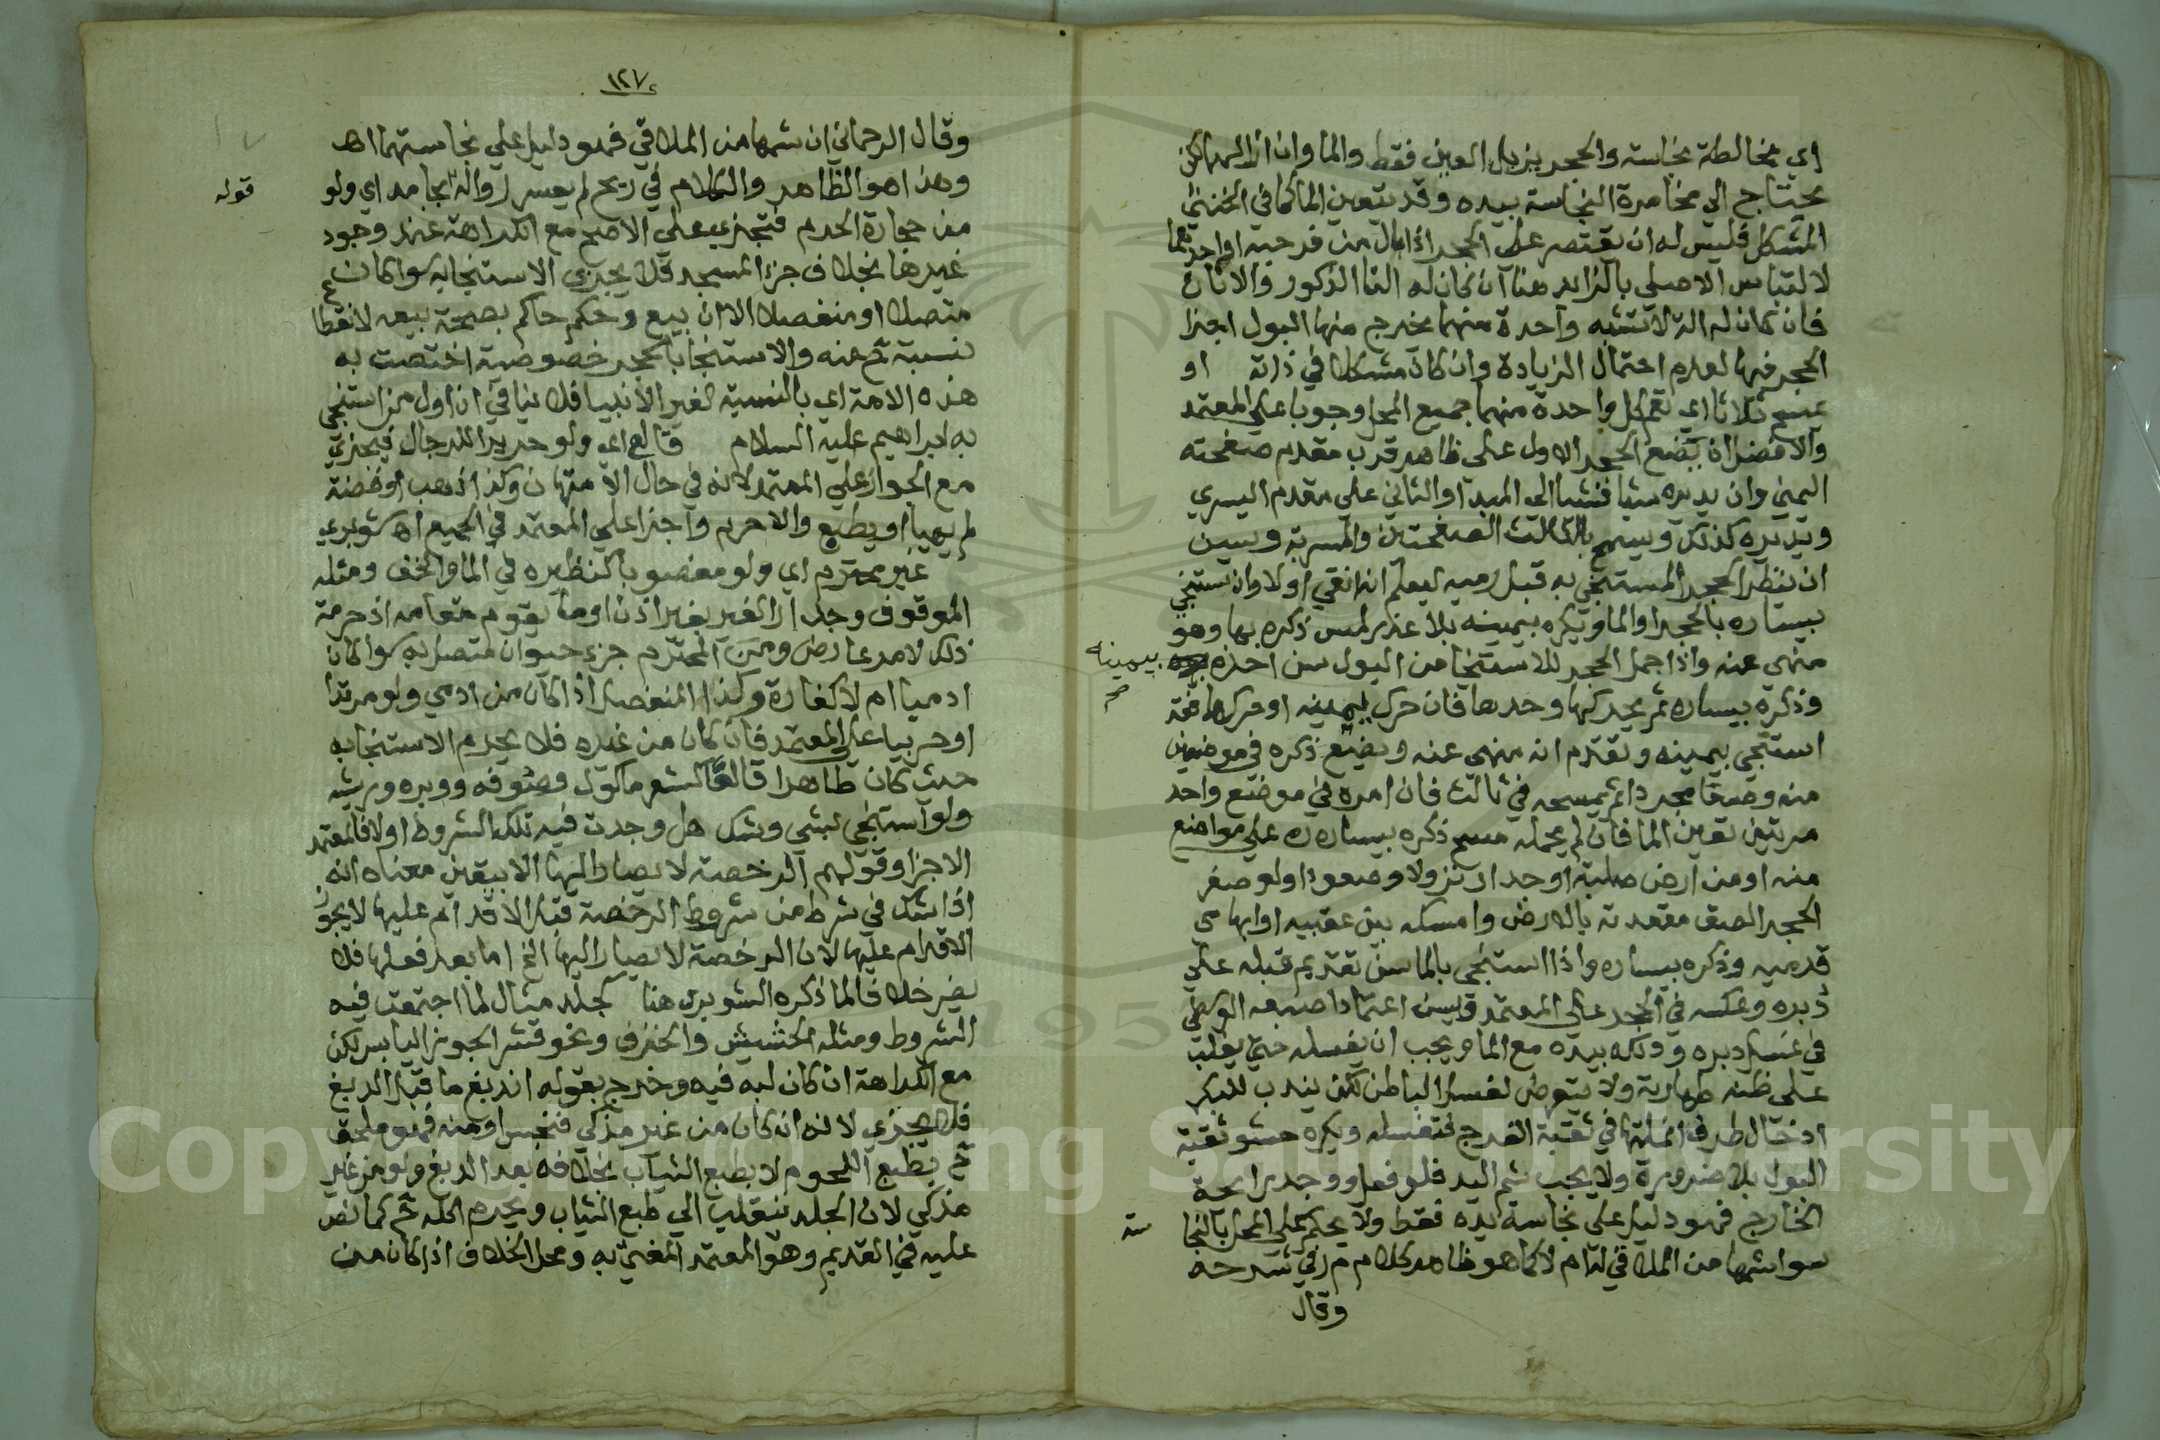 اي مخالطة نجاسته والحجر يزيل العين فقط والما وان ازالهما لكن
يحتاج الي مخامرة النجاسة بيده وقد يتعين الما كما في الخنثي
المشكل فليس له ان يقتصر علي الحجر اذا بال من فرجيه او احدهما
لالتباس الاصلي بالزائد هنا ان كان له التا الذكور والاناث
فان كان له الة لا تشبه واحدة منهما يخرج منها البول اجزا
الحجر فيها لعدم احتمال الزيادة وان كان مشكلا في ذاته او
يمسح ثلاثا اي تعم كل واحدة منهما جميع المحل وجوبا علي المعتمد
والافضل ان يضع الحجر الاول علي طاهر قرب مقدم صفحته
اليمني وان يديره شيا فشيا الي المبدا والثاني علي مقدم اليسري
ويديره كذلك ويمسح بالثالث الصفحتين والمسربة ويسن
ان ينظر الحجر المستنجي به قبل رميه ليعلم انه انقي اولا وان يستنجي
بيساره بالحجر او الما ويكره بيمينه بلا عذر لمس ذكره بها وهو
منهي عنه واذا حمل الحجر للاستنجا من البول سن اخذه بيمينه
وذكره بيساره ثم يحركها وحدها فان حرك يمينه او حركهما فقد
استنجي بيمينه وتقدم انه منهي عنه ويضع ذكره في موضعين
منه وضعا مجردا ثم يمسحه في ثالث فان امره في موضع واحد
مرتين تعين الما فان لم يحمله مسح ذكره بيساره علي مواضع
منه او من ارض صلبة او جدار نزولا وصعودا ولو صغر
الحجر الصق مقعدته بالارض وامسكه بين عقبيه او ابهامي
قدميه وذكره بيساره واذا استنجي بالما سن تقديم قبله علي
دبره وعكسه في الحجر علي المعتمد ويسن اعتمادا صبعه الوسطي
في غسل دبره ودلكه بيده مع الما ويجب ان يغسله حتي يغلب
علي ظنه طهارته ولا يتعرض لغسل الباطن لكن يندب للبكر
ادخال طرف انملتها في ثقبة الفرج لتغسله ويكره حشو ثقبة
البول بلا ضرورة ولا يجب شم اليد فلو فعل ووجد رايحة
الخارج فهو دليل علي نجاسة يده فقط ولا يحكم علي المحل بالنجا
سته
سوا شمها من الملاقي له ام لا كما هو ظاهر كلام م ر في شرحه
وقال
١٢٧
وقال الرحماني ان شمها من الملاقي فهو دليل علي نجاستهما اهـ
وهذا هو الظاهر والكلام في ريح لم يعسر زواله بجامد اي ولو
قوله
من حجارة الحرم فتجزي علي الاصح مع الكراهة عند وجود
غيرها بخلاف جزء المسجد فلا يجزي الاستنجا به سوا كان
متصلا او منفصلا الا ان بيع وحكم حاكم بصحة بيعه لانقطاع
نسبته ثم عنه والاستنجا بالحجر خصوصية اختصت به
هذه الامة اي بالنسبة لغير الانبيا فلا ينافي ان اول من استنجي
به ابراهيم عليه السلام قالع اي ولو حريرا للرجال فيجزي
مع الجواز علي المعتمد لانه في حال الامتهان وكذا ذهب او فضة
لم يهيا او يطبع والا حرم واجزا علي المعتمد في الجميع اه شوبري
غير محترم اي ولو مغصوبا كنظيره في الما والخف ومثله
الموقوف وجدار الغير بغير اذن او ما يقوم مقامه اذ حرمة
ذلك لامر عارض ومن المحترم جزء حيوان متصل به سوا كان
ادميا ام لا كفارة وكذا المنفصل اذا كان من ادمي ولو مرتدا
او حربيا علي المعتمد فان كان من غيره فلا يحرم الاستنجا به
حيث كان طاهرا قالعا كشعر ماكول وصوفه ووبره وريشه
ولو استنجي بشي وشك هل وجدت فيه تلك الشروط اولا فالمعتمد
الاجزا وقولهم الرخصة لا يصار اليها الا بيقين معناه انه
اذا شك في شرط من شروط الرخصة قبل الاقدام عليها لا يجوز
الاقدام عليها لان الرخصة لا يصار اليها الخ اما بعد فعلها فلا
يضر خلافا لما ذكره الشوبري هنا كجلد مثال لما اجتمعت فيه
الشروط ومثله الحشيش والخزف ونحو قشر الجوز اليابس لكن
مع الكراهة ان كان لبه فيه وخرج بقوله اندبغ ما قبل الدبغ
فلا يجزي لانه ان كان من غير مذكي فنجس او منه فهو ملحق
ثم بطبع اللحوم لا بطبع الثياب بخلافه بعد الدبغ ولو من غير
مذكي لان الجلد ينقلب الي طبع الثياب ويحرم اكله ثم كما نص
عليه في القديم وهو المعتمد المفتي به ومحل الخلاف اذا كان من
Copyright © King Saud University
1957